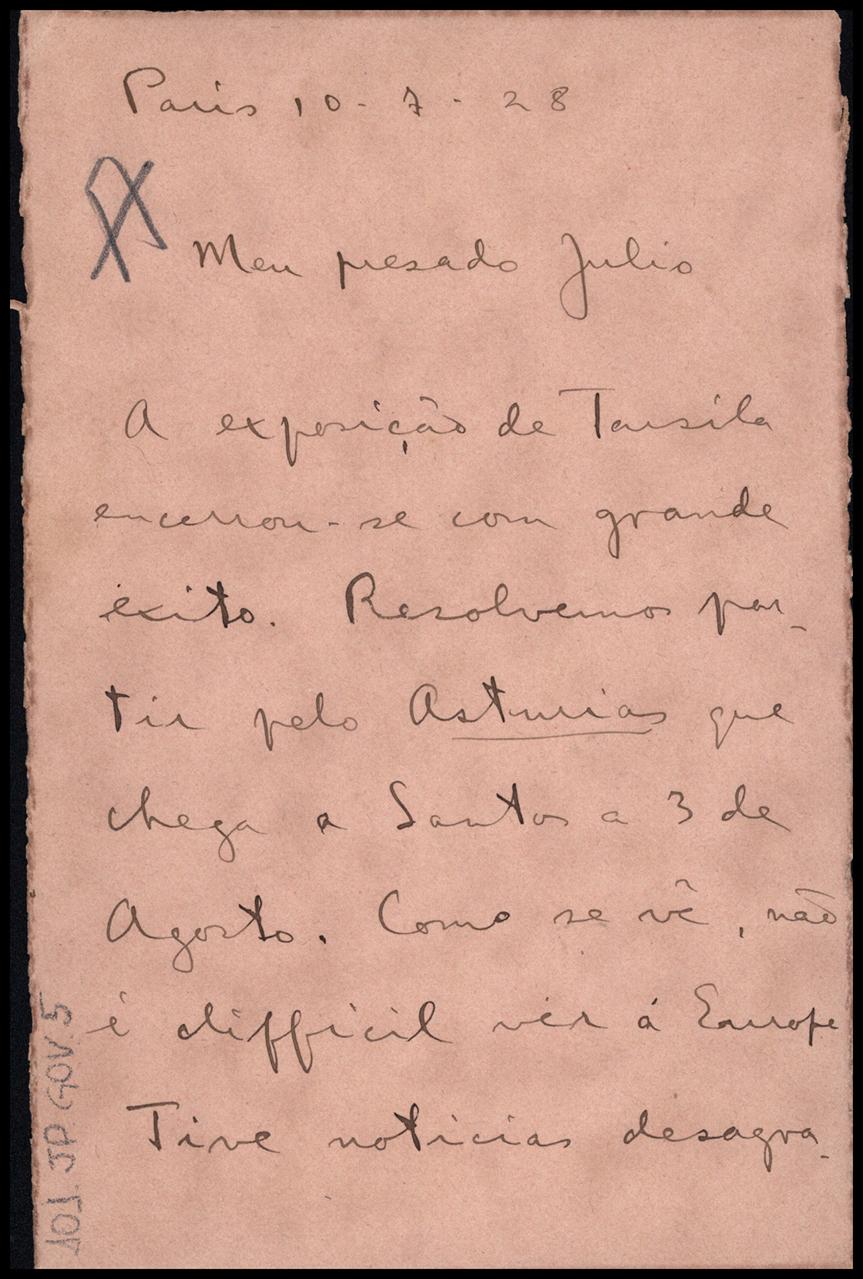 Paris 10-7-28
Meu presado Julio
A exposição de Tarsila
encerrou-se com grande
exito. Resolvemos par-
tir pelo Asturias que
chega a Santos a 3 de
Agosto. Como se vê, não
é difficil vir á Europe
Tive noticias desagra-
AOJ. JP. GOV. 5